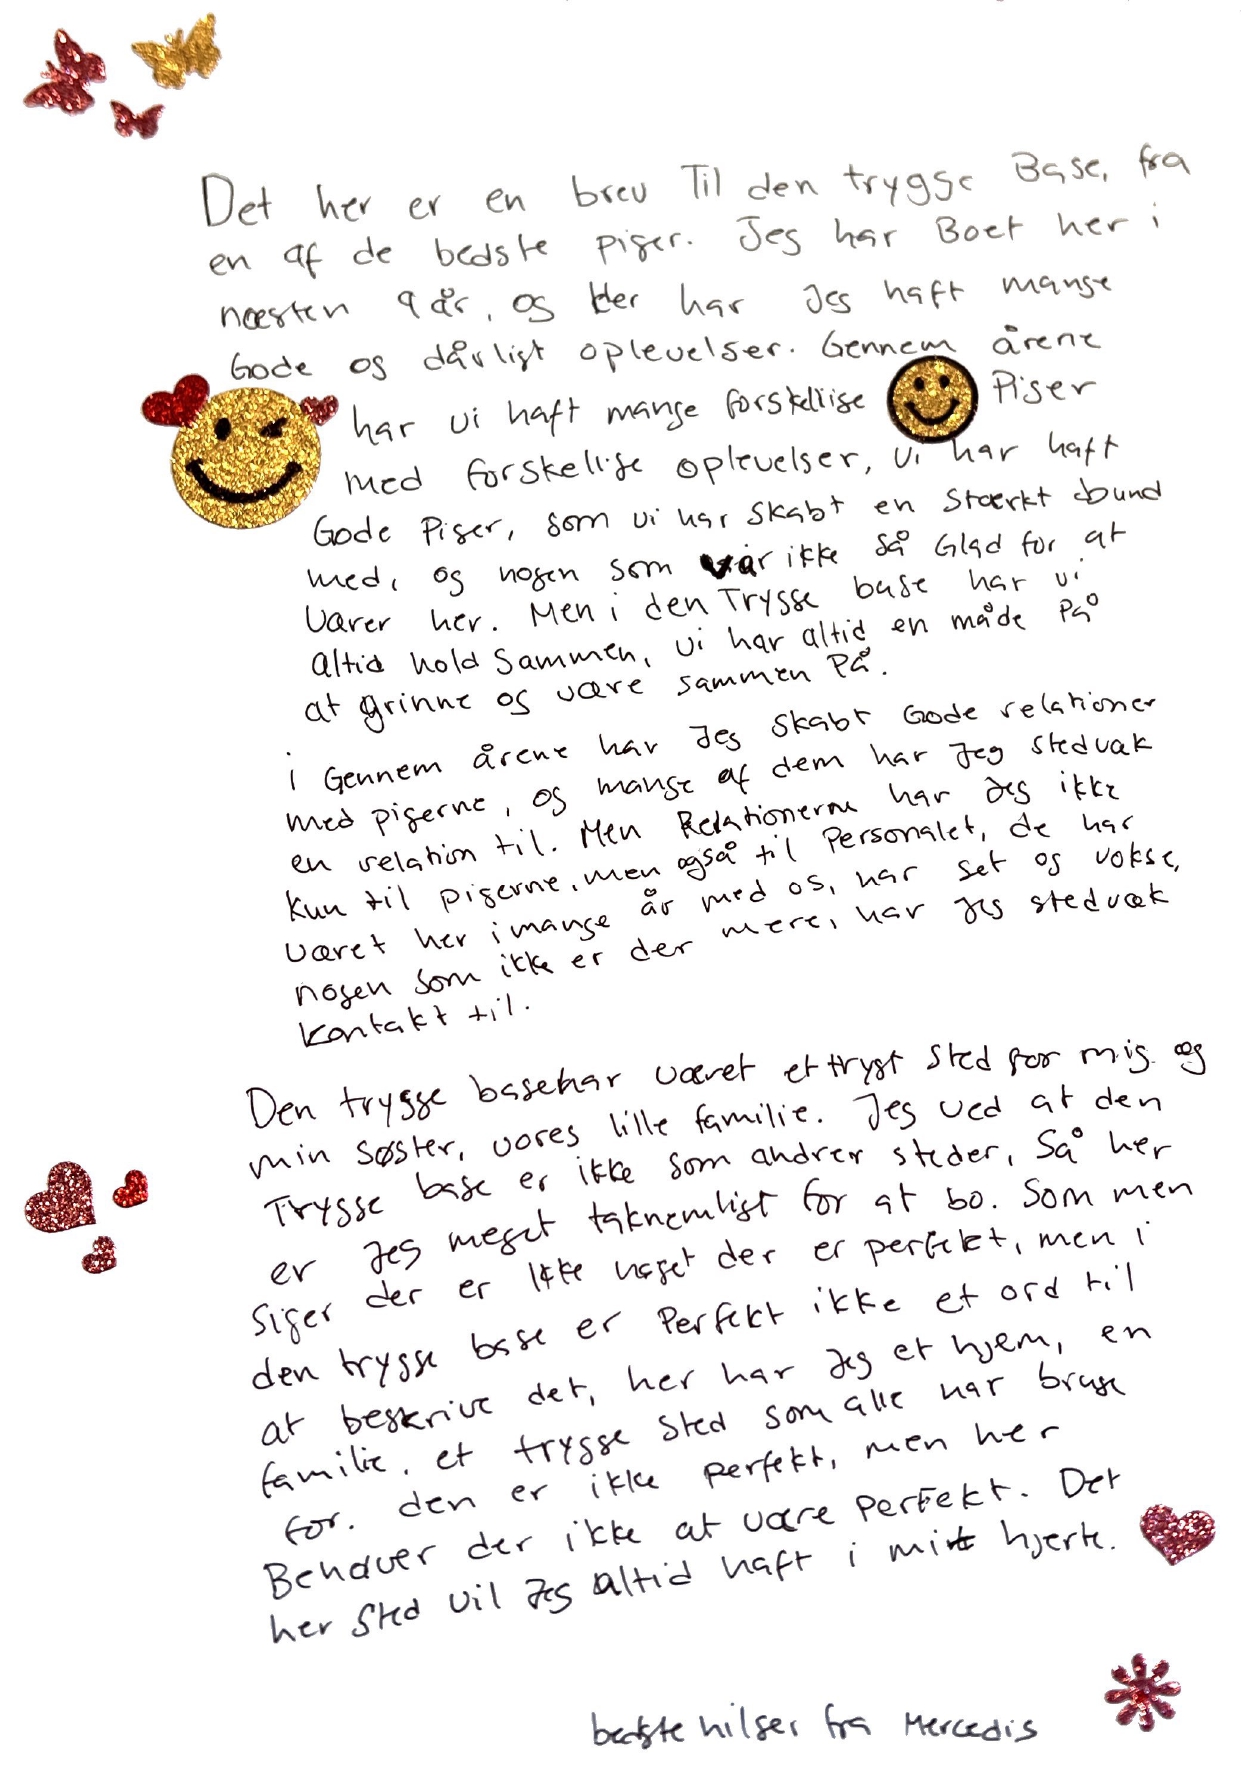 Det her er en brev Til den trygge Base, fra
en af de bedste piger. Jeg har Boet her i
næsten 9 år, og her har Jeg haft mange
Gode og dårligt oplevelser. Gennem årene
har vi haft mange forskellige Piger
med forskellige oplevelser, vi har haft
Gode Piger, som vi har skabt en stærkt bund
med, og nogen som var ikke så Glad for at
værer her. Men i den Trygge base har vi
altid hold sammen, vi har altid en måde på
at grinne og være sammen På.
i Gennem årene har Jeg skabt Gode relationer
med pigerne, og mange af dem har Jeg stedvæk
en relation til. Men Relationerne har Jeg ikke
kun til pigerne, men også til Personalet, de har
været her i mange år med os, har set og vokse,
nogen som ikke er der mere, har Jeg stedvæk
kontakt til.
Den trygge base har været et trygt sted for mig og
min søster, vores lille familie. Jeg ved at den
Trygge base er ikke som andrer steder, Så her
er Jeg meget taknemligt for at bo. Som men
Siger der er Ikke noget der er perfekt, men i
den trygge base er Perfekt ikke et ord til
at beskrive det, her har Jeg et hjem, en
familie, et trygge sted som alle har bruge
for. den er ikke perfekt, men her
Behøver der ikke at være Perfekt. Det
her sted vil Jeg altid haft i mit hjerte.
bedste hilser fra Mercedis